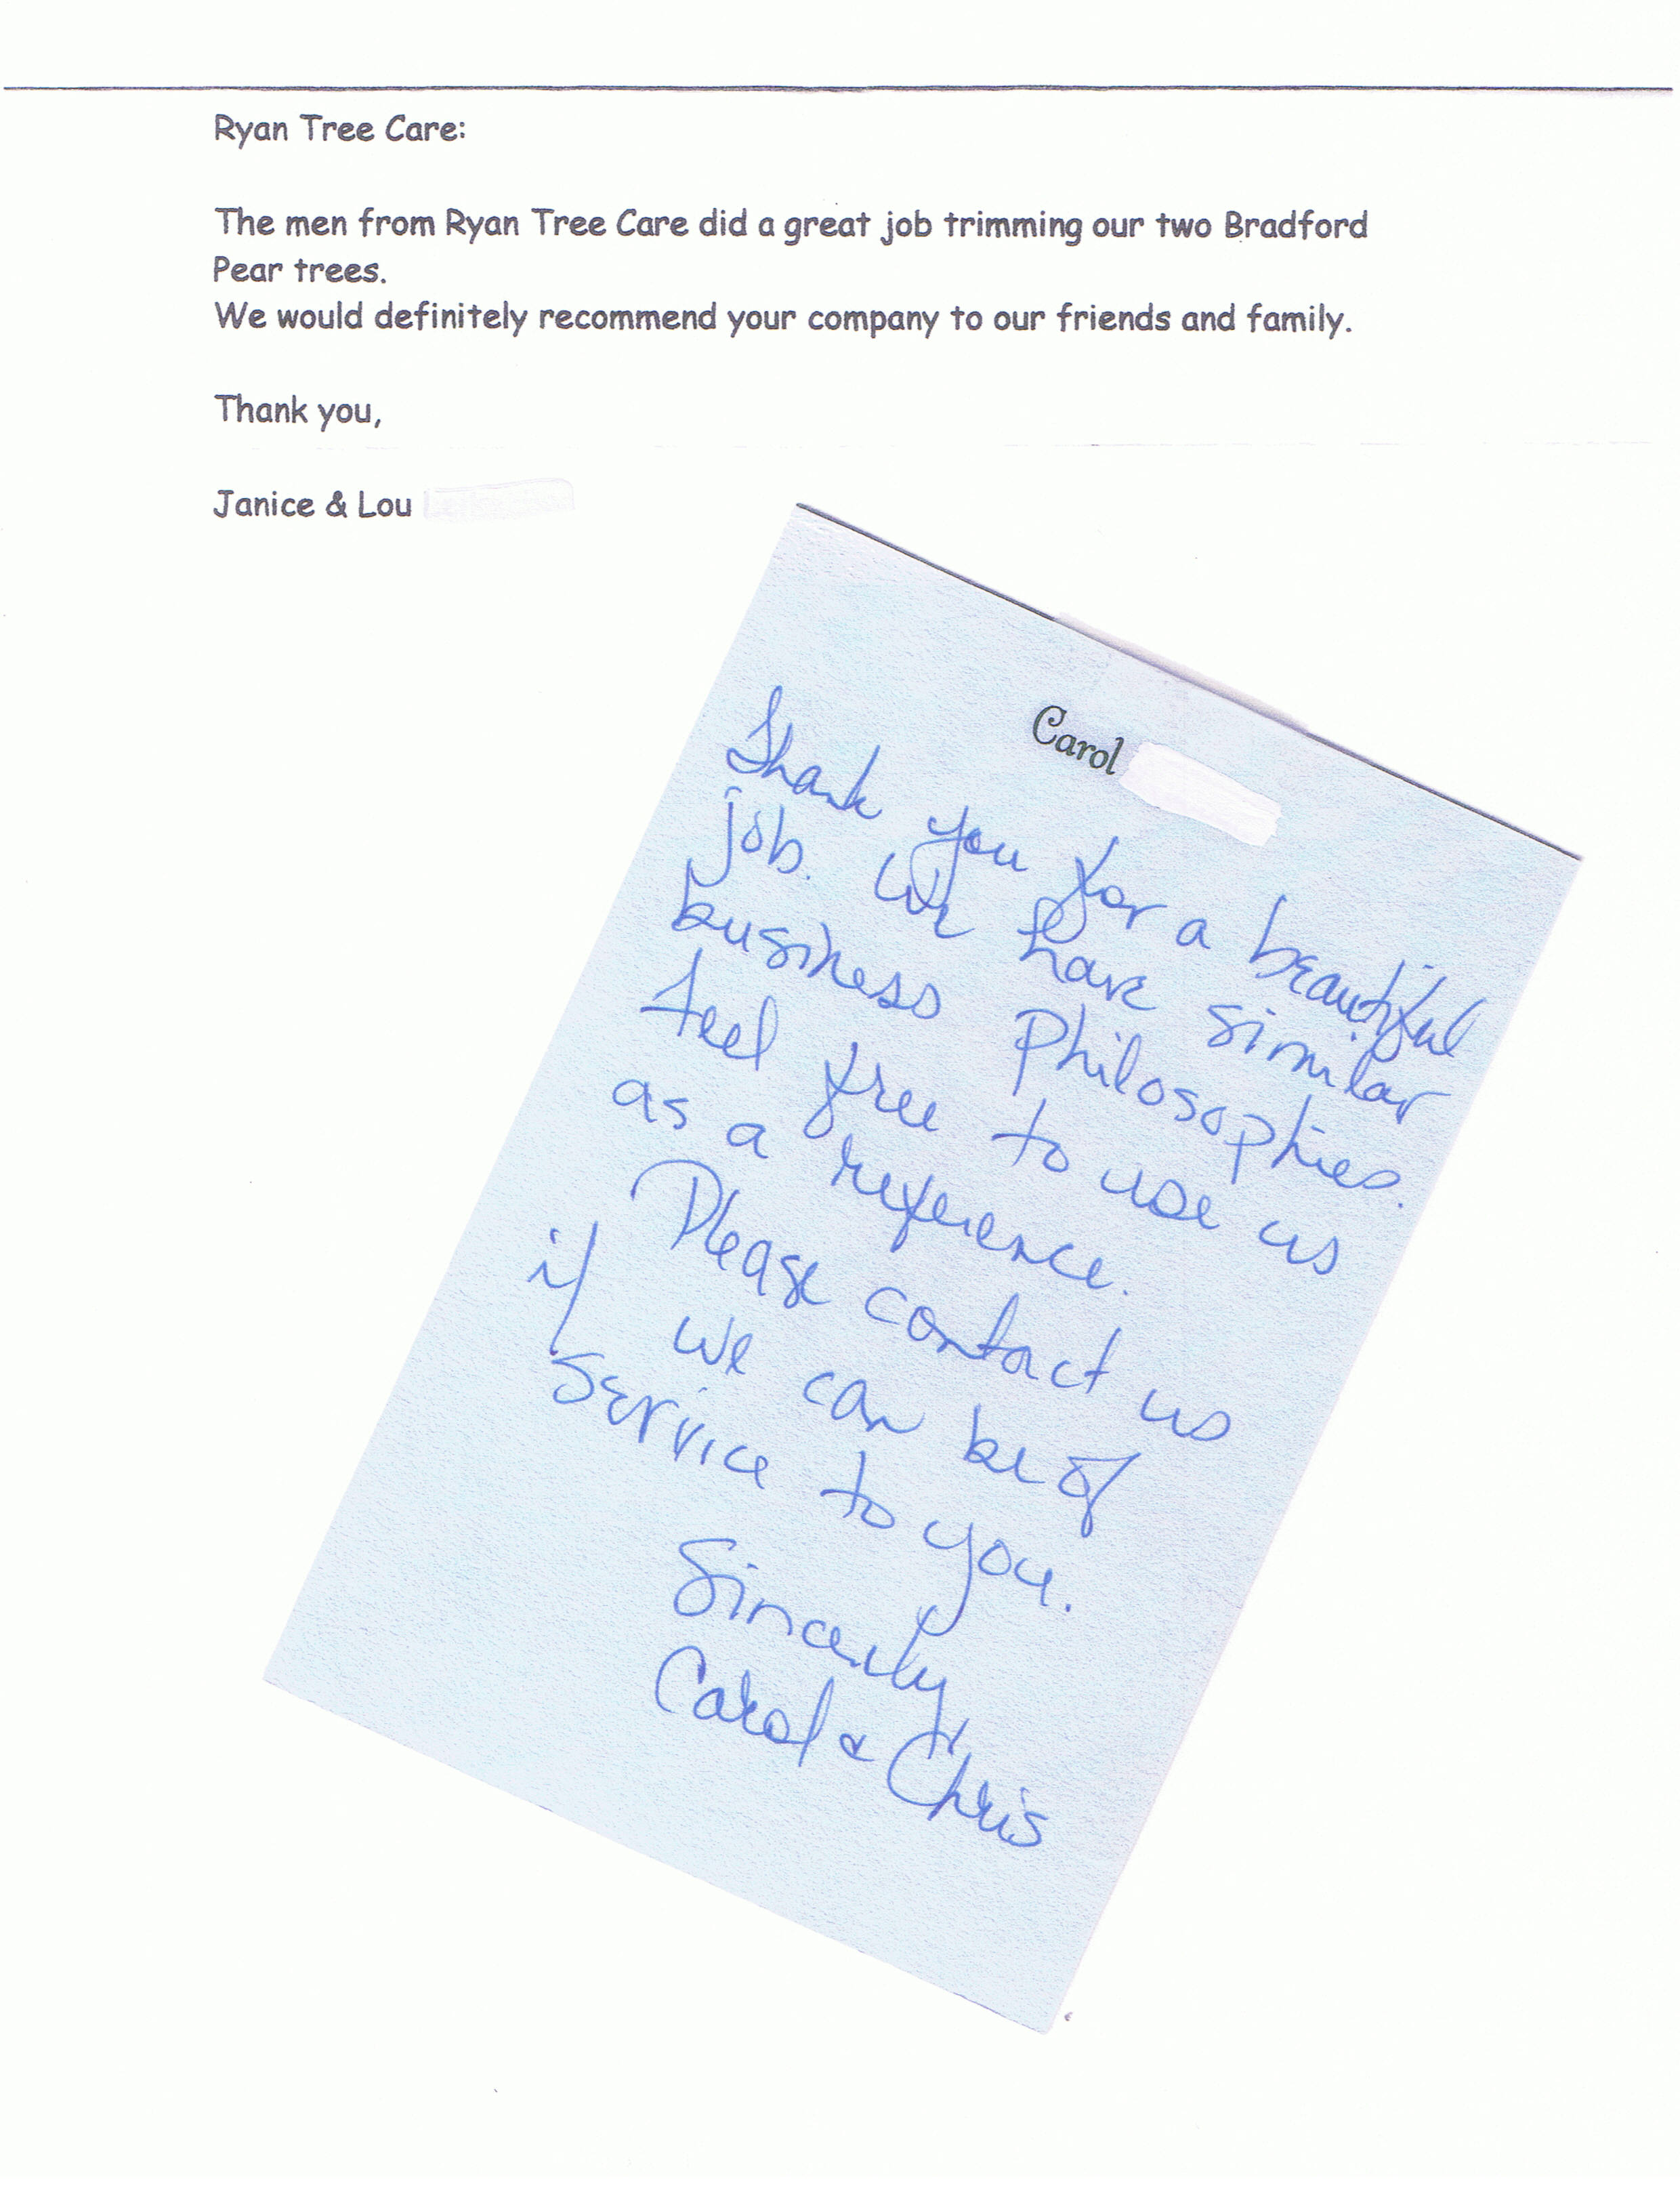 Ryan Tree Care:
The men from Ryan Tree Care did a great job trimming our two Bradford
Pear trees.
We would definitely recommend your company to our friends and family.
Thank you,
Janice & Lou
Carol
Thank you for a beautiful
job. We have similar
business philosophies.
feel free to use us
as a reference.
Please contact us
if we can be of
service to you.
Sincerly,
Carol & Chris